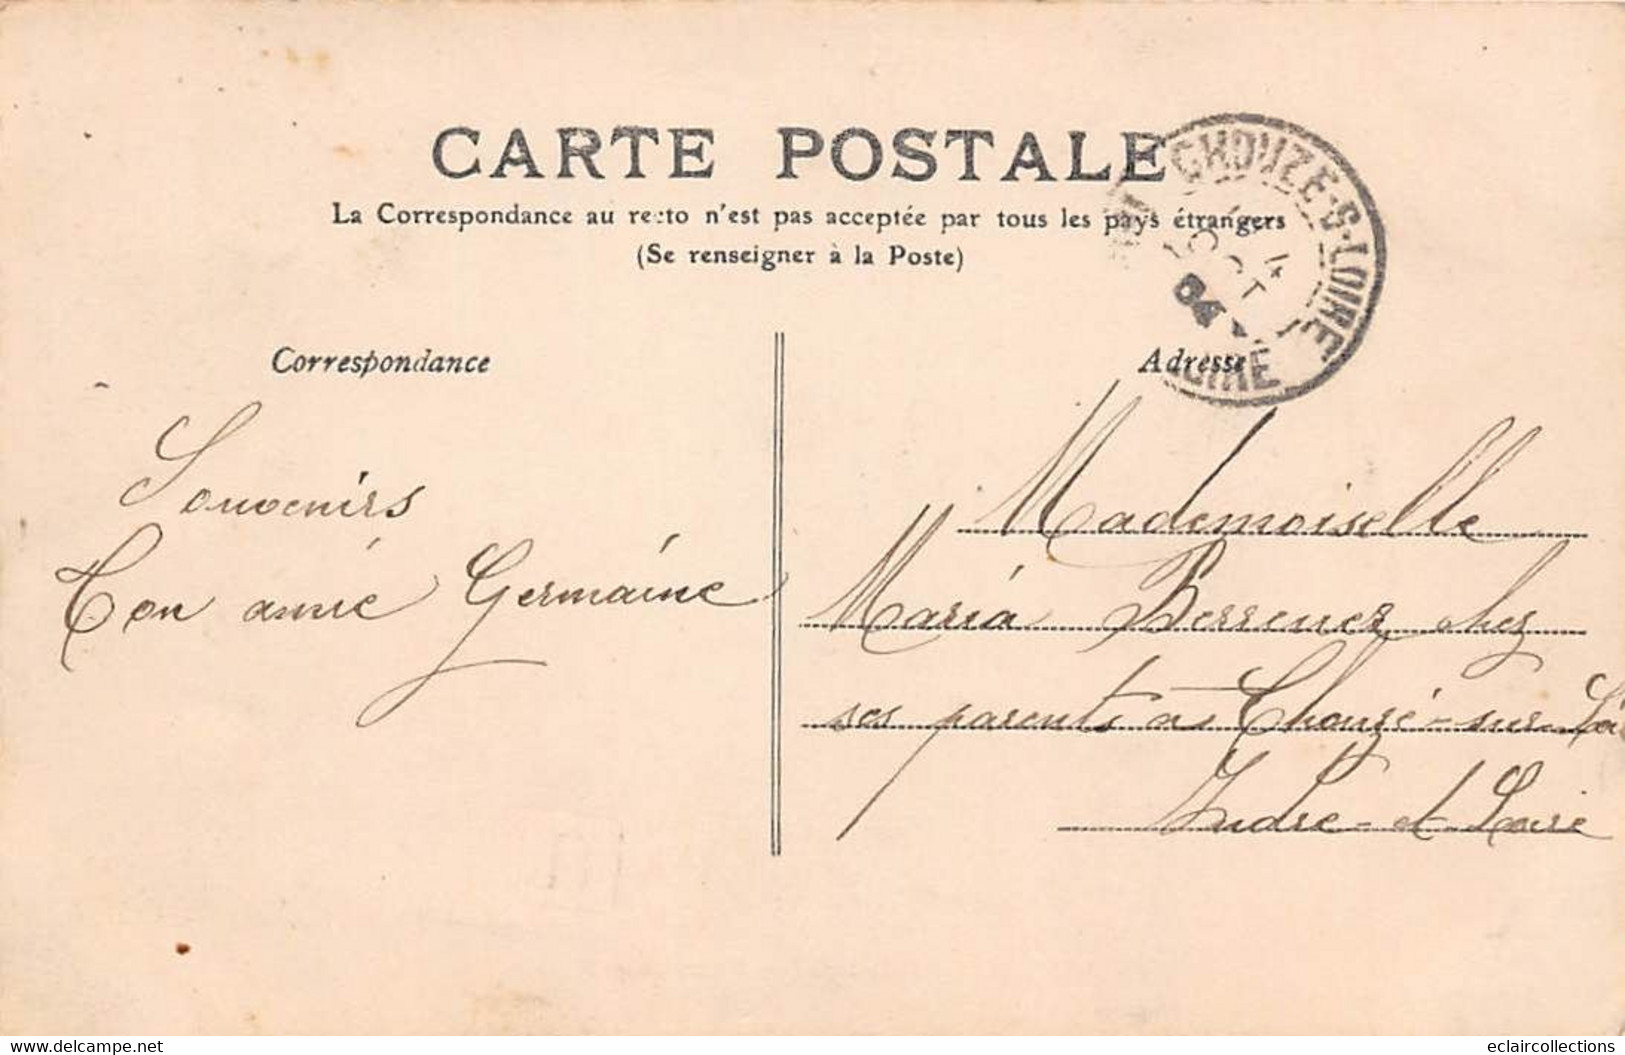 CARTE POSTALE
La Correspondance au recto n'est pas acceptée par tous les pays étrangers
(Se renseigner à la Poste)
CHOUZE-S-LOIRE
OCT
04
LOIRE
Correspondance
Souvenirs
Ton amie Germaine
Adresse
Mademoiselle
Maria chez
ses parents à Chouzé-sur-Loi
Indre-et-Loire
www.delcampe.net
eclaircollections